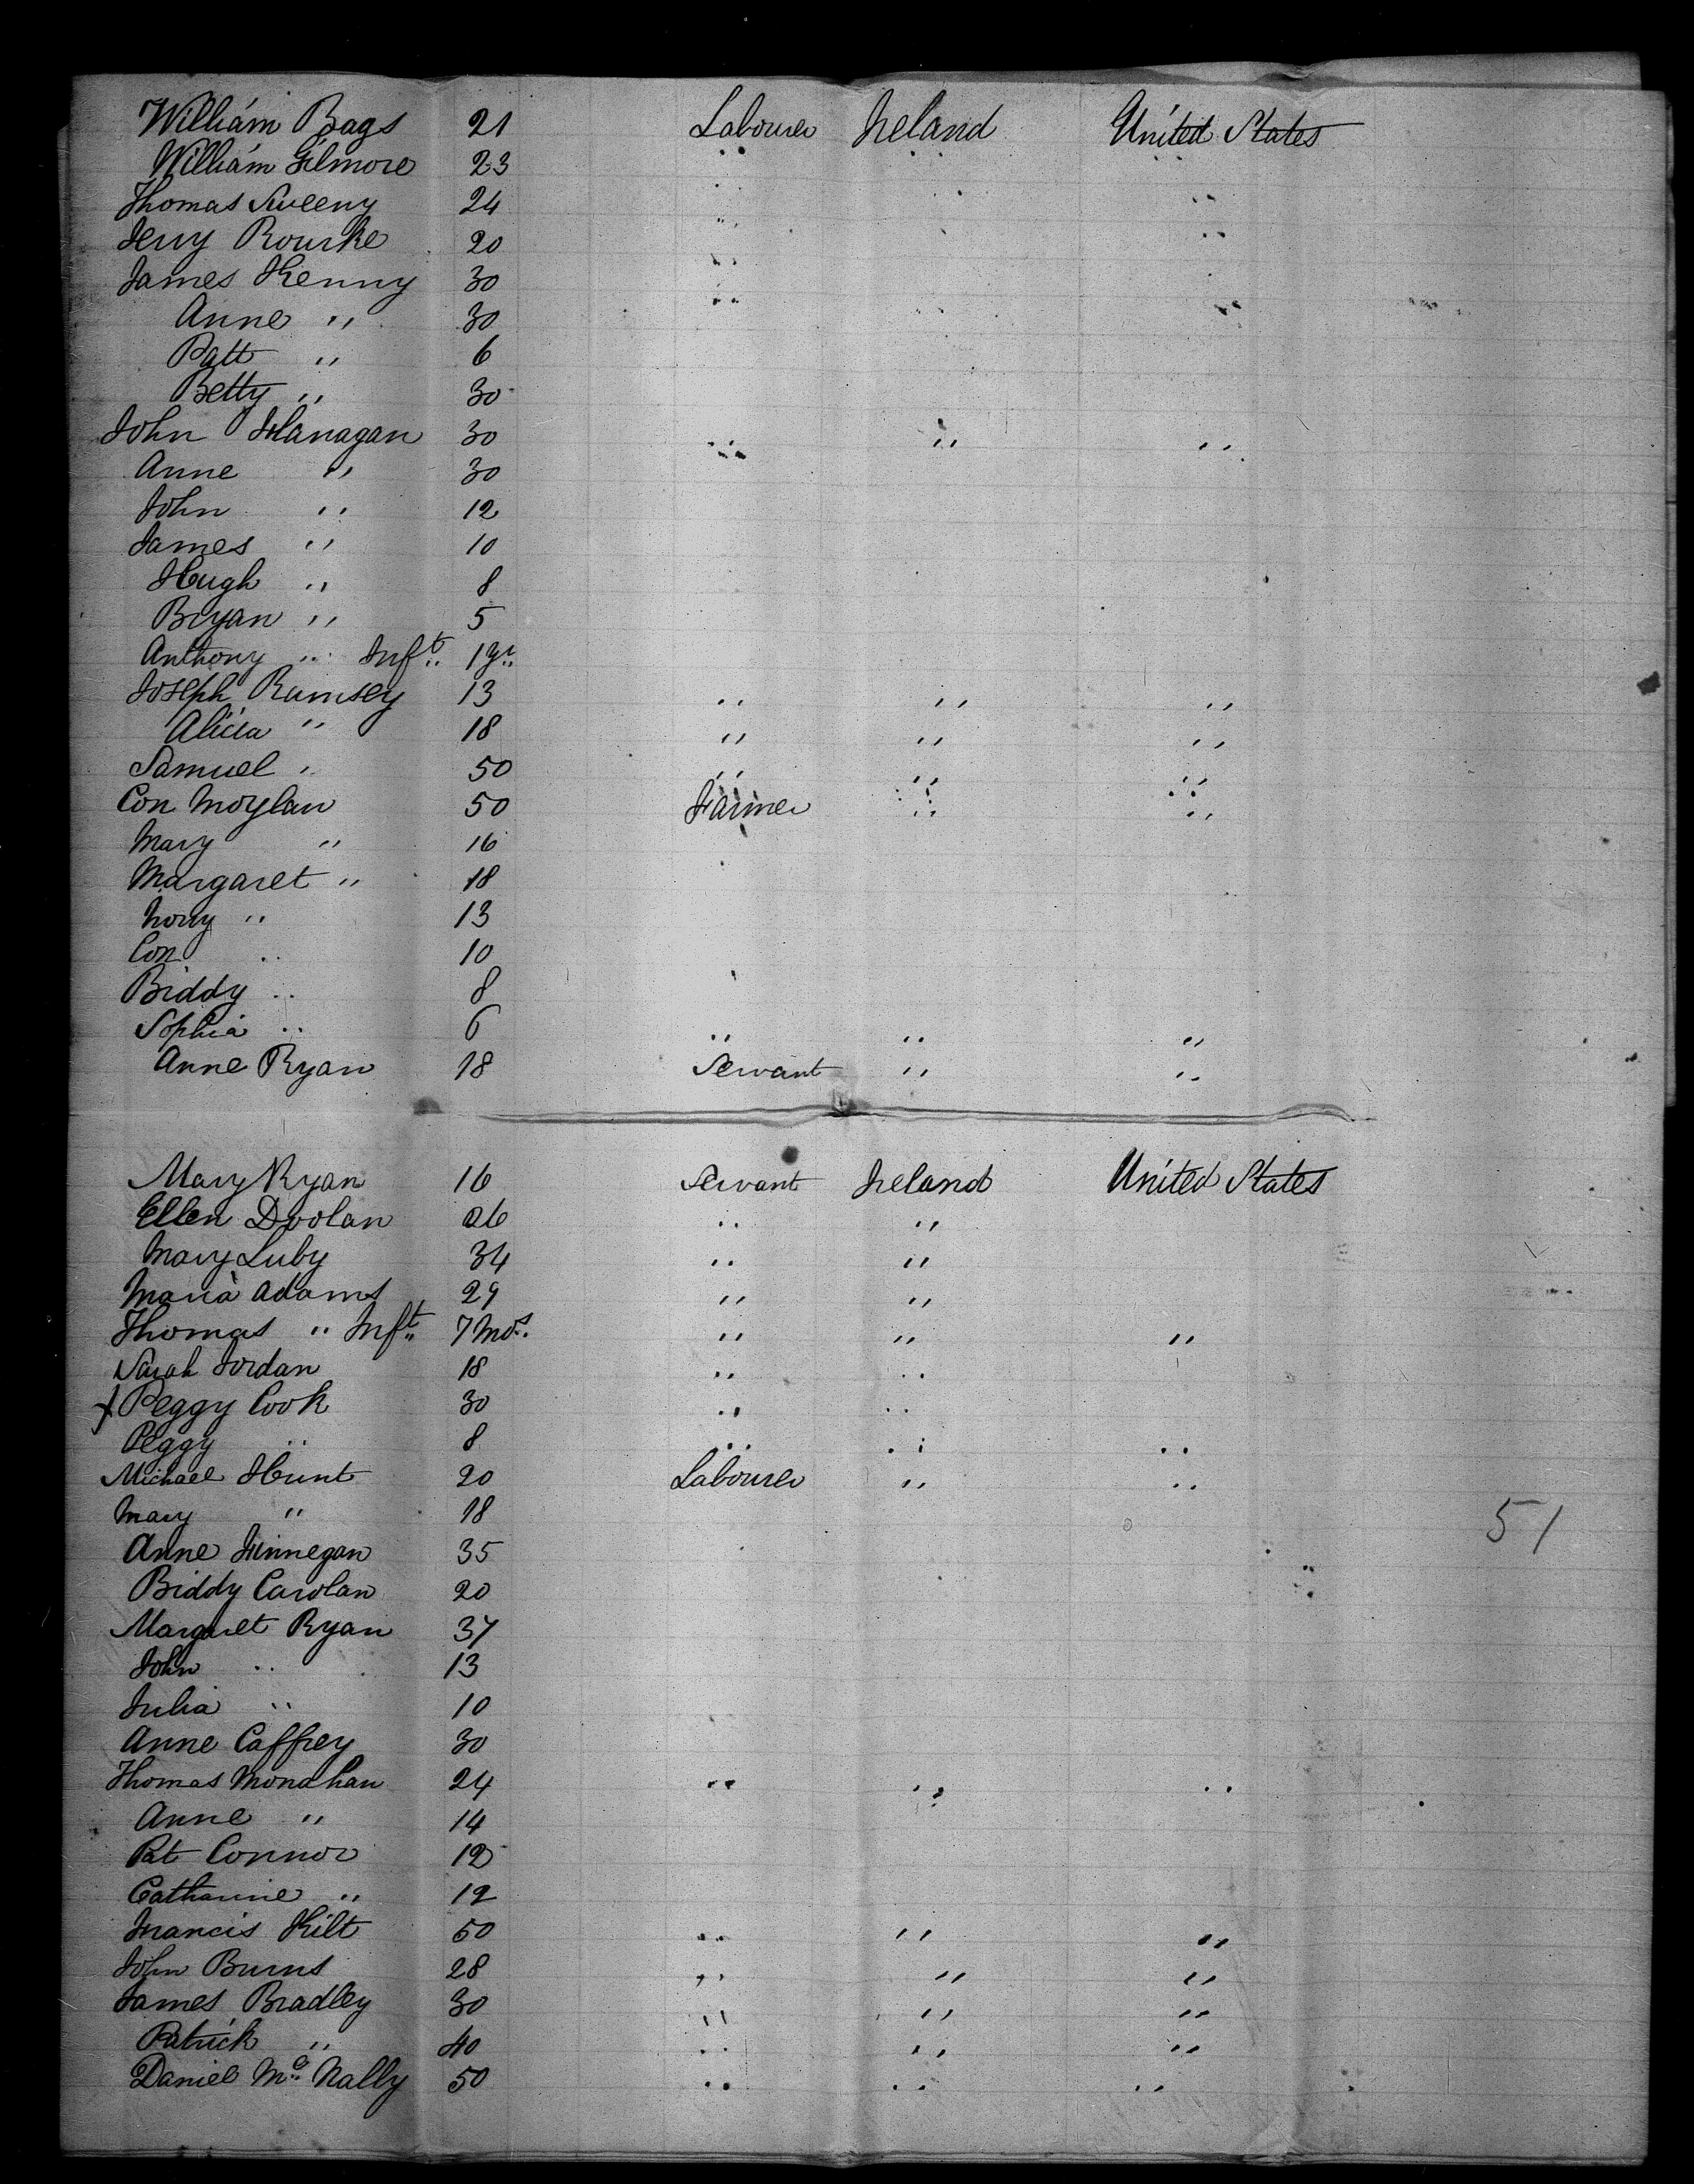 William Bags 21 Labourer Ireland United States
William Gilmore 23 " "
Thomas Sweeny 24 " " "
Jerry Rourke 20 " "
James Kenny 30 "
Anne " 30 " "
Patt " 6
Betty " 30
John Flanagan 30 " " "
Anne " 30
John " 12
James " 10
Hugh " 8
Bryan " 5
Anthony " Inft. 1 yr.
Joseph Ramsey 13 " " "
Alicia " 18 " " "
Samuel " 50 " " "
Con Moylan 50 Farmer " "
Mary " 16
Margaret " 18
Nory " 13
Con " 10
Biddy " 8
Sophia " 6 " " "
Anne Ryan 18 Servant " "
Mary Ryan 16 Servant Ireland United States
Ellen Doolan 26 " "
Mary Luby 34 " "
Maria Adams 29 " "
Thomas " Inft. 7 Mos. " " "
Sarah Jordan 18 " "
X Peggy Cook 30 " "
Peggy " 8 " " "
Michael Hunt 20 Labourer " "
Mary " 18
51
Anne Finnegan 35
Biddy Carolan 20
Margaret Ryan 37
John " 13
Julia " 10
Anne Caffrey 30
Thomas Monahan 24 " " "
Anne " 14
Pat Connor 12
Catharine " 12
Francis Kilt 50 " " "
John Burns 28 " " "
James Bradley 30 " " "
Patrick " 40 " " "
Daniel Mc Nally 50 " " "